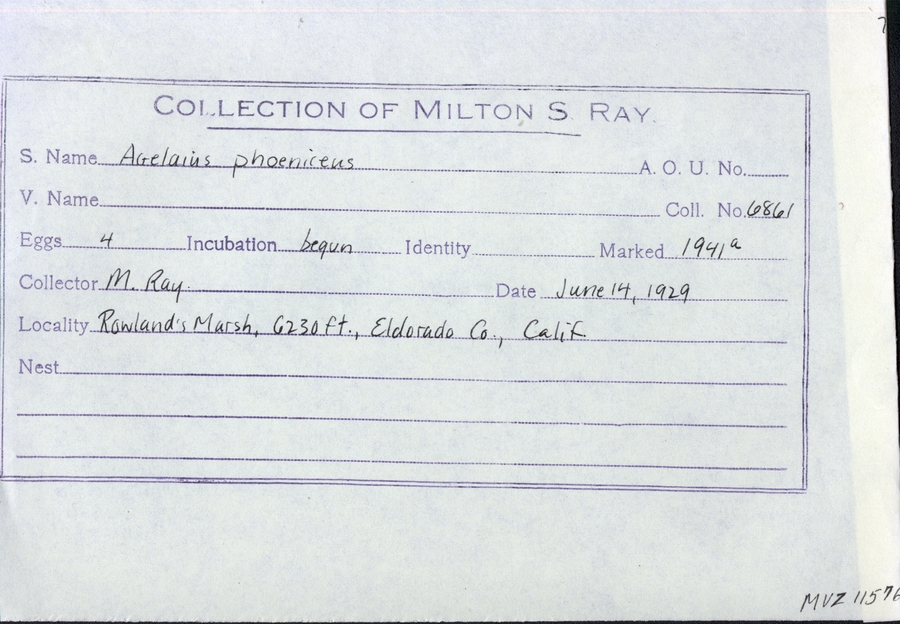 COLLECTION OF MILTON S. RAY.
S. Name Agelaius phoeniceus A. O. U. No.
V. Name Coll. No. 6861
Eggs 4 Incubation begun Identity Marked 1941a
Collector M. Ray. Date June 14, 1929
Locality Rowland's Marsh, 6230 ft., Eldorado Co., Calif
Nest
MVZ 11576